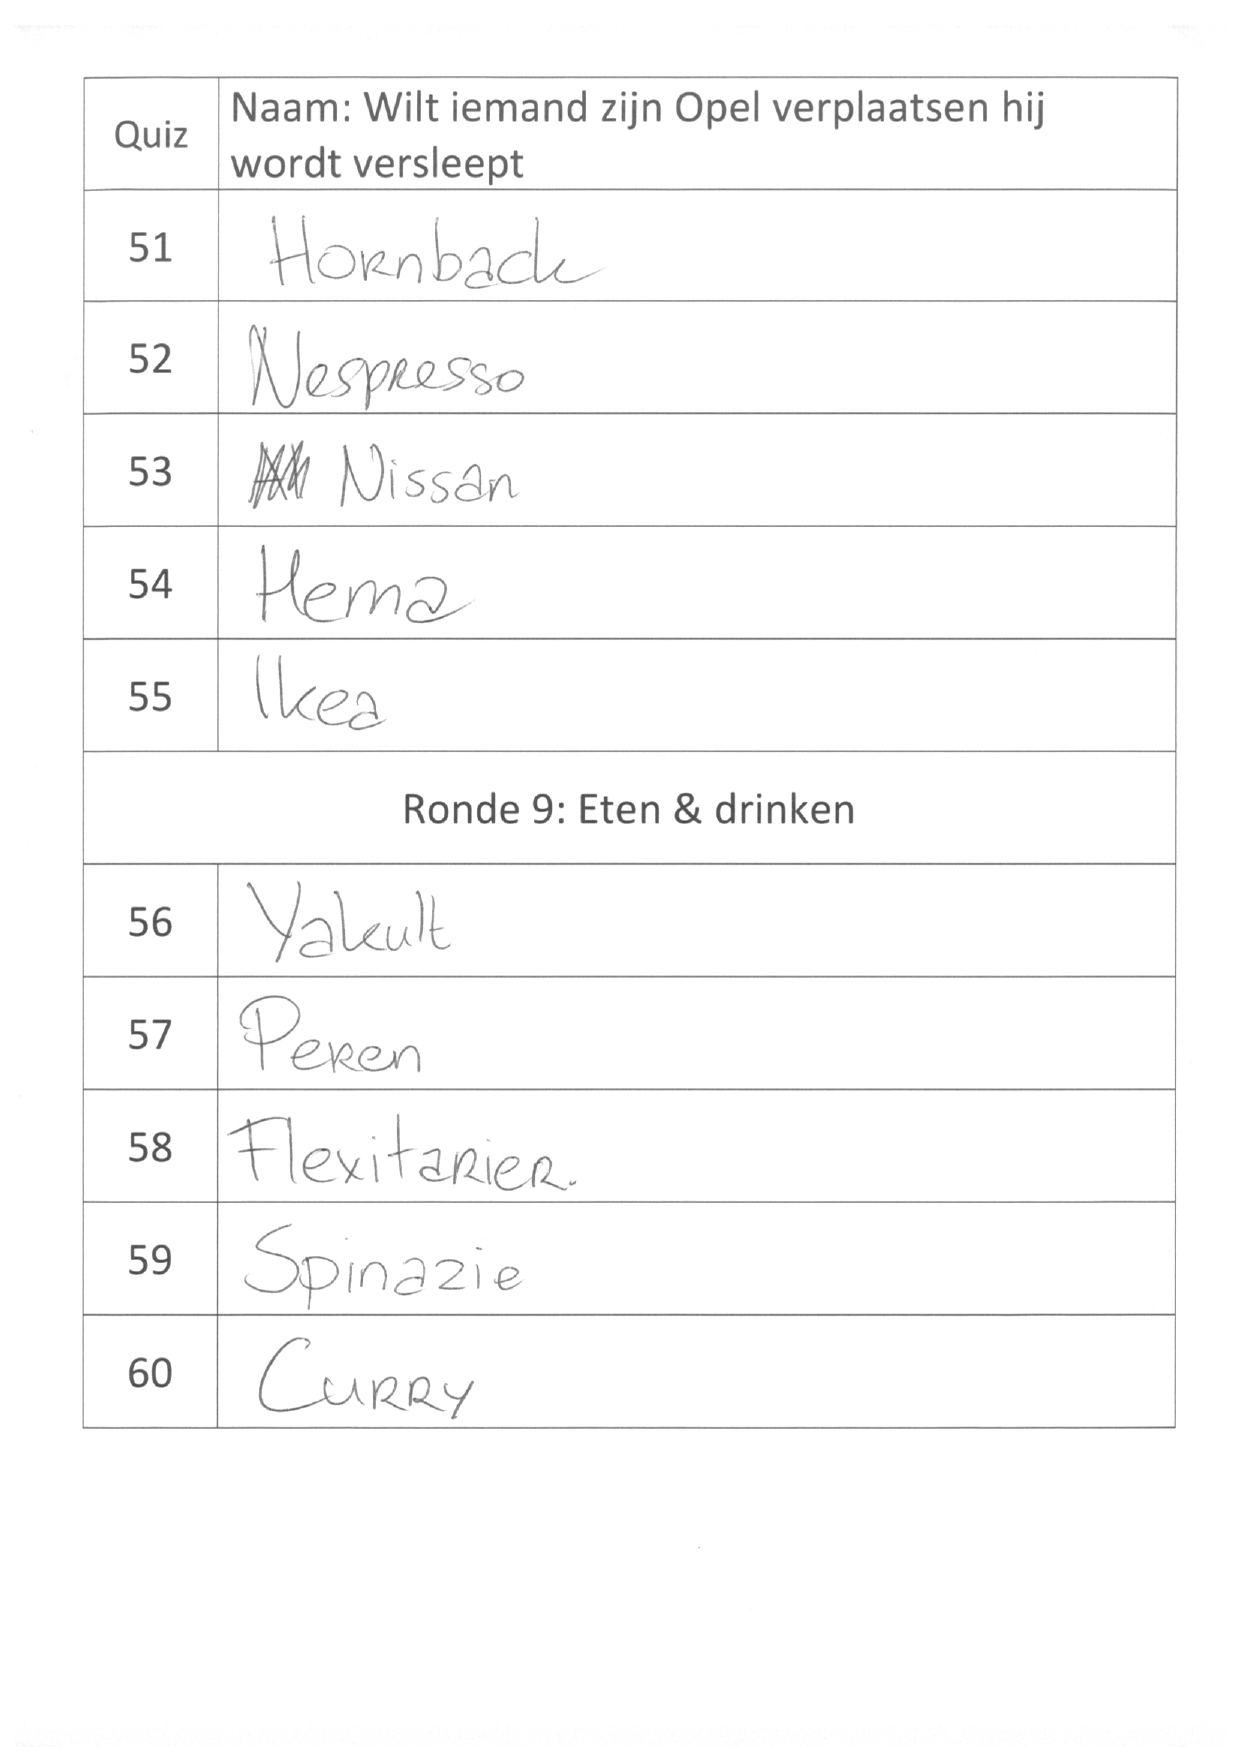 Quiz
Naam: Wilt iemand zijn Opel verplaatsen hij
wordt versleept
51 Hornback
52 Nespresso
53 Nissan
54 Hema
55 Ikea
Ronde 9: Eten & drinken
56 Yakult
57 Peren
58 Flexitarier.
59 Spinazie
60 Curry